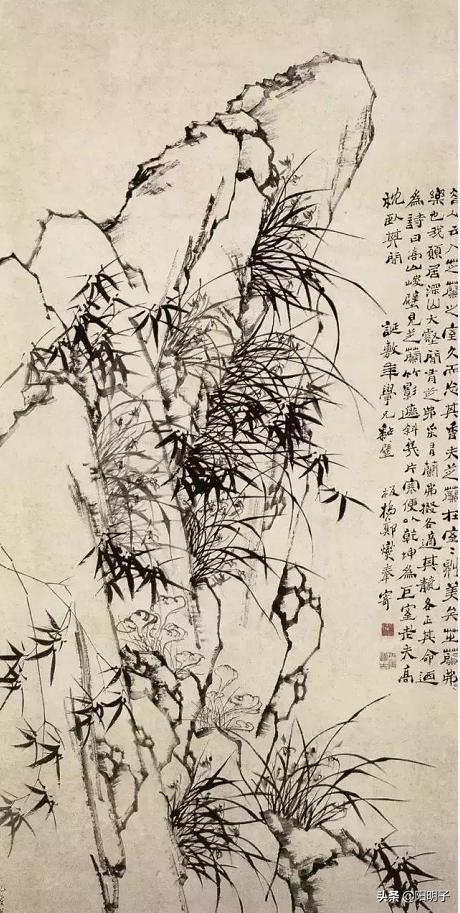 昔人云入芝蘭之室久而忘其香夫芝蘭在室室則美矣芝蘭弗
樂也我願居深山大壑間有芝弗采有蘭弗掇各適其各正其命迺
為詩曰高山峻壁見芝蘭竹影遮斜幾片寒便以乾坤為巨室老夫高
枕臥其間
誕敷年學兄黏壁 板橋鄭燮奉寄
头条 @阳明子